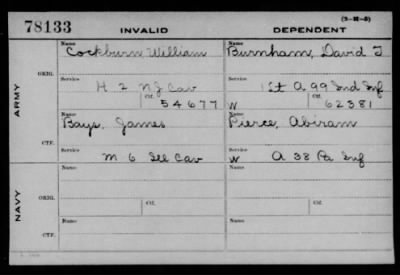 (3-M-3)
78133 INVALID DEPENDENT
Name Name
Cockburn, William Burnham, David J
ORIG. Service Service
H 2 NJ Cav 1 Lt A 99 Ind Inf
Ctf. Ctf.
54677 W 62381
ARMY
Name Name
Bays, James Pierce, Abiram
CTF. Service Service
M 6 Ill Cav W A 38 Pa Inf
Name Name
ORIG. Service Ctf. Service Ctf.
NAVY
Name Name
CTF.